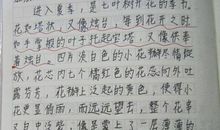 进入夏季，是七叶树开花的季节。
花如塔状，又像烛台，每到花开之时，
如手掌般的叶子托起宝塔，又像供奉
着烛台。四片淡白色的小花瓣尽情绽
放，花芯内七个橘红色的花蕊向外吐
露芬芳，花瓣上泛起的黄色，使得小
花更显俏丽，而远远望去，整个花串
又白中泛紫，像是蒙上了一层薄薄的